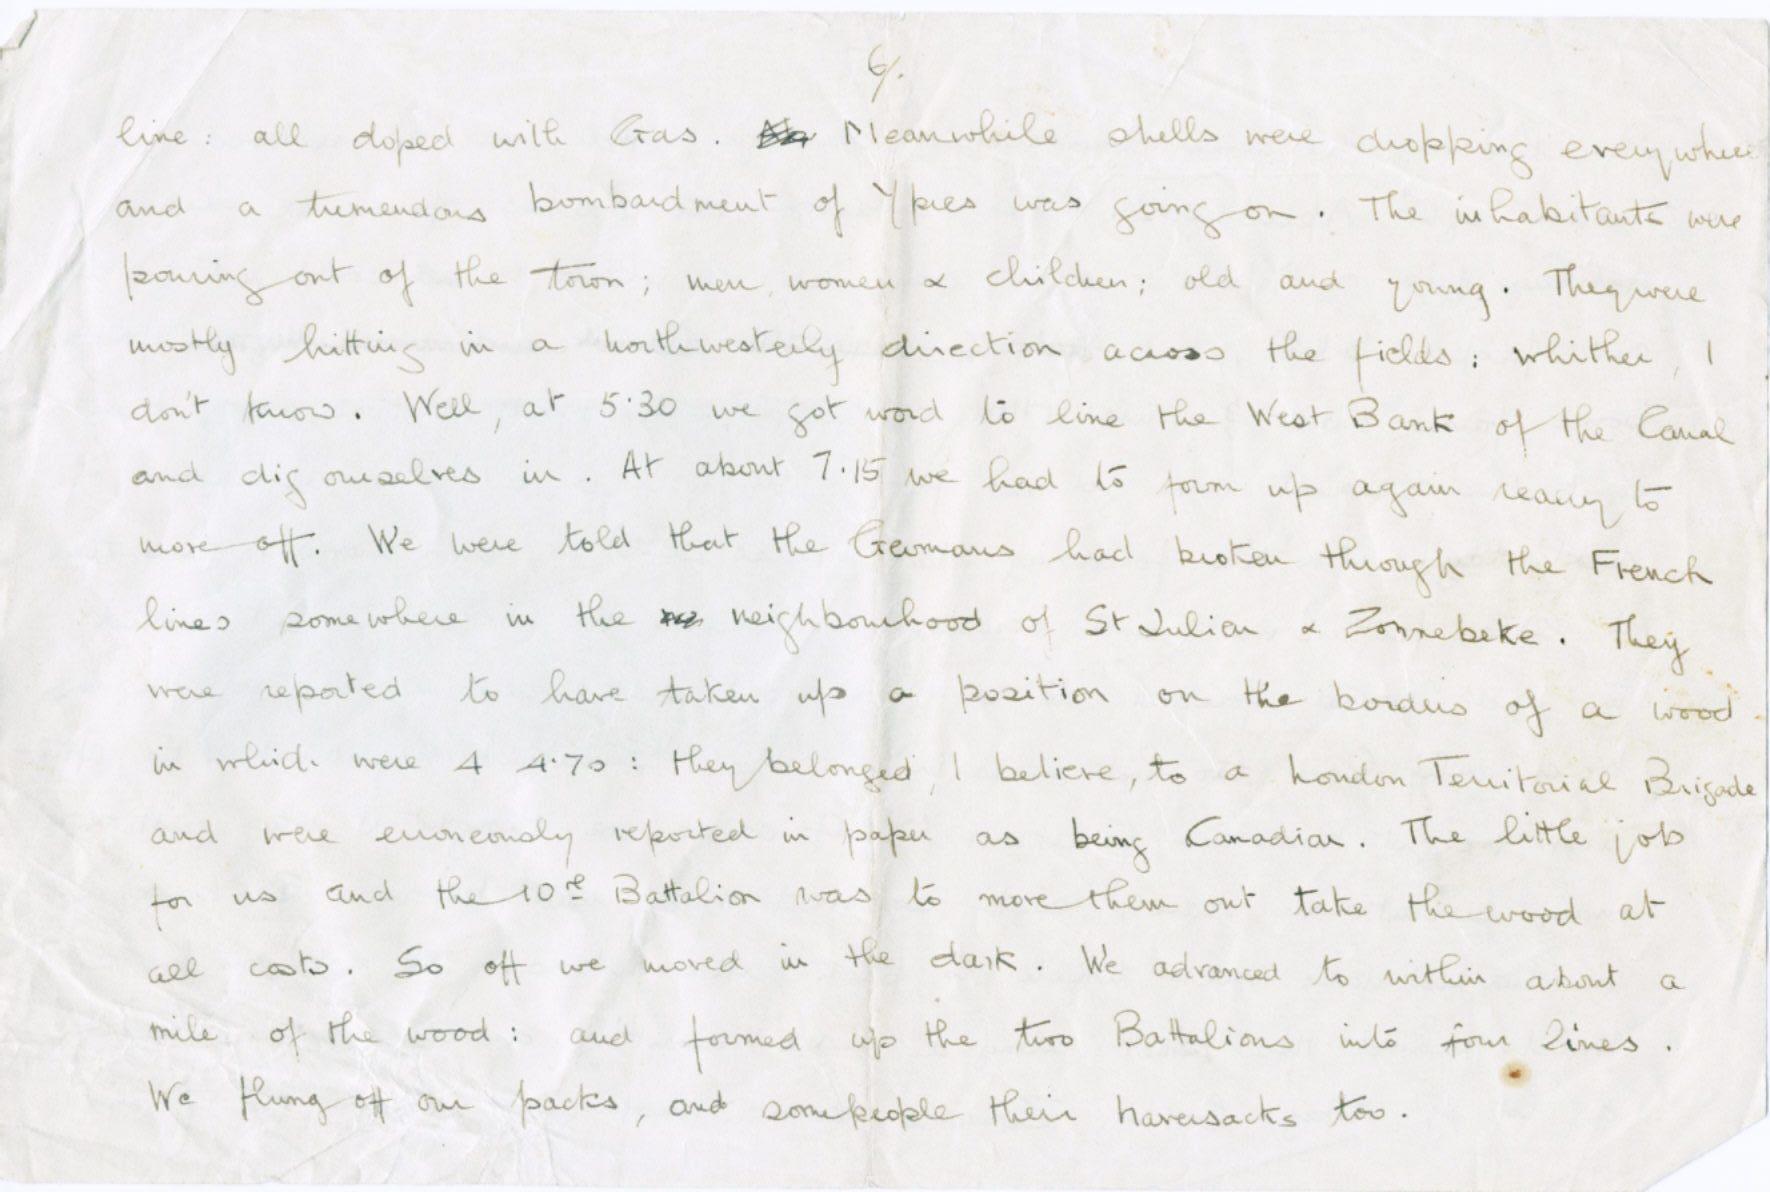 6/.
line: all doped with Gas. Meanwhile shells were dropping everywhere
and a tremendous bombardment of Ypres was going on. The inhabitants were
pouring out of the town; men, women & children; old and young. They were
mostly hitting in a northwesterly direction across the fields: whither, I
don't know. Well, at 5·30 we got word to line the West Bank of the Canal
and dig ourselves in. At about 7.15 we had to form up again ready to
move off. We were told that the Germans had broken through the French
lines somewhere in the neighbourhood of St Julien & Zonnebeke. They
were reported to have taken up a position on the borders of a wood
in which were 4 4·7s: they belonged, I believe, to a London Territorial Brigade
and were erroneously reported in paper as being Canadian. The little job
for us and the 10th Battalion was to move them out take the wood at
all costs. So off we moved in the dark. We advanced to within about a
mile of the wood: and formed up the two Battalions into four lines.
We flung off our packs, and some people their haversacks too.